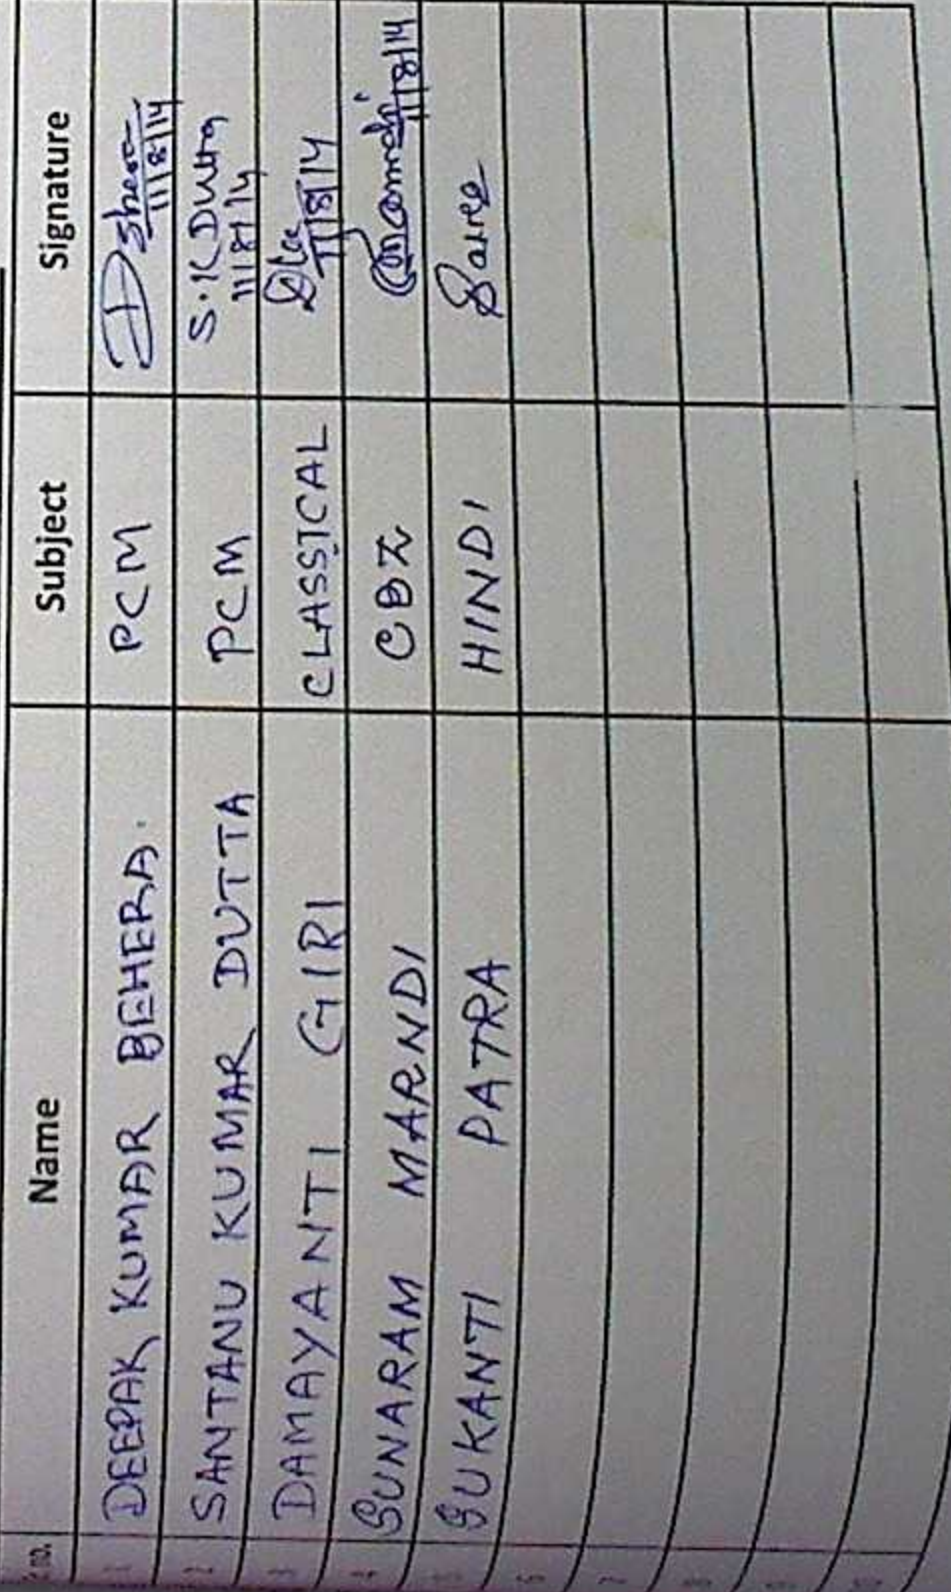 S.no. Name Subject Signature
1 DEEPAK KUMAR BEHERA. PCM 11/8/14
2 SANTANU KUMAR DUTTA PCM S.K Dutta 11/8/14
3 DAMAYANTI GIRI CLASSICAL 11/8/14
4 SUNARAM MARNDI CBZ 11/8/14
SUKANTI PATRA HINDI